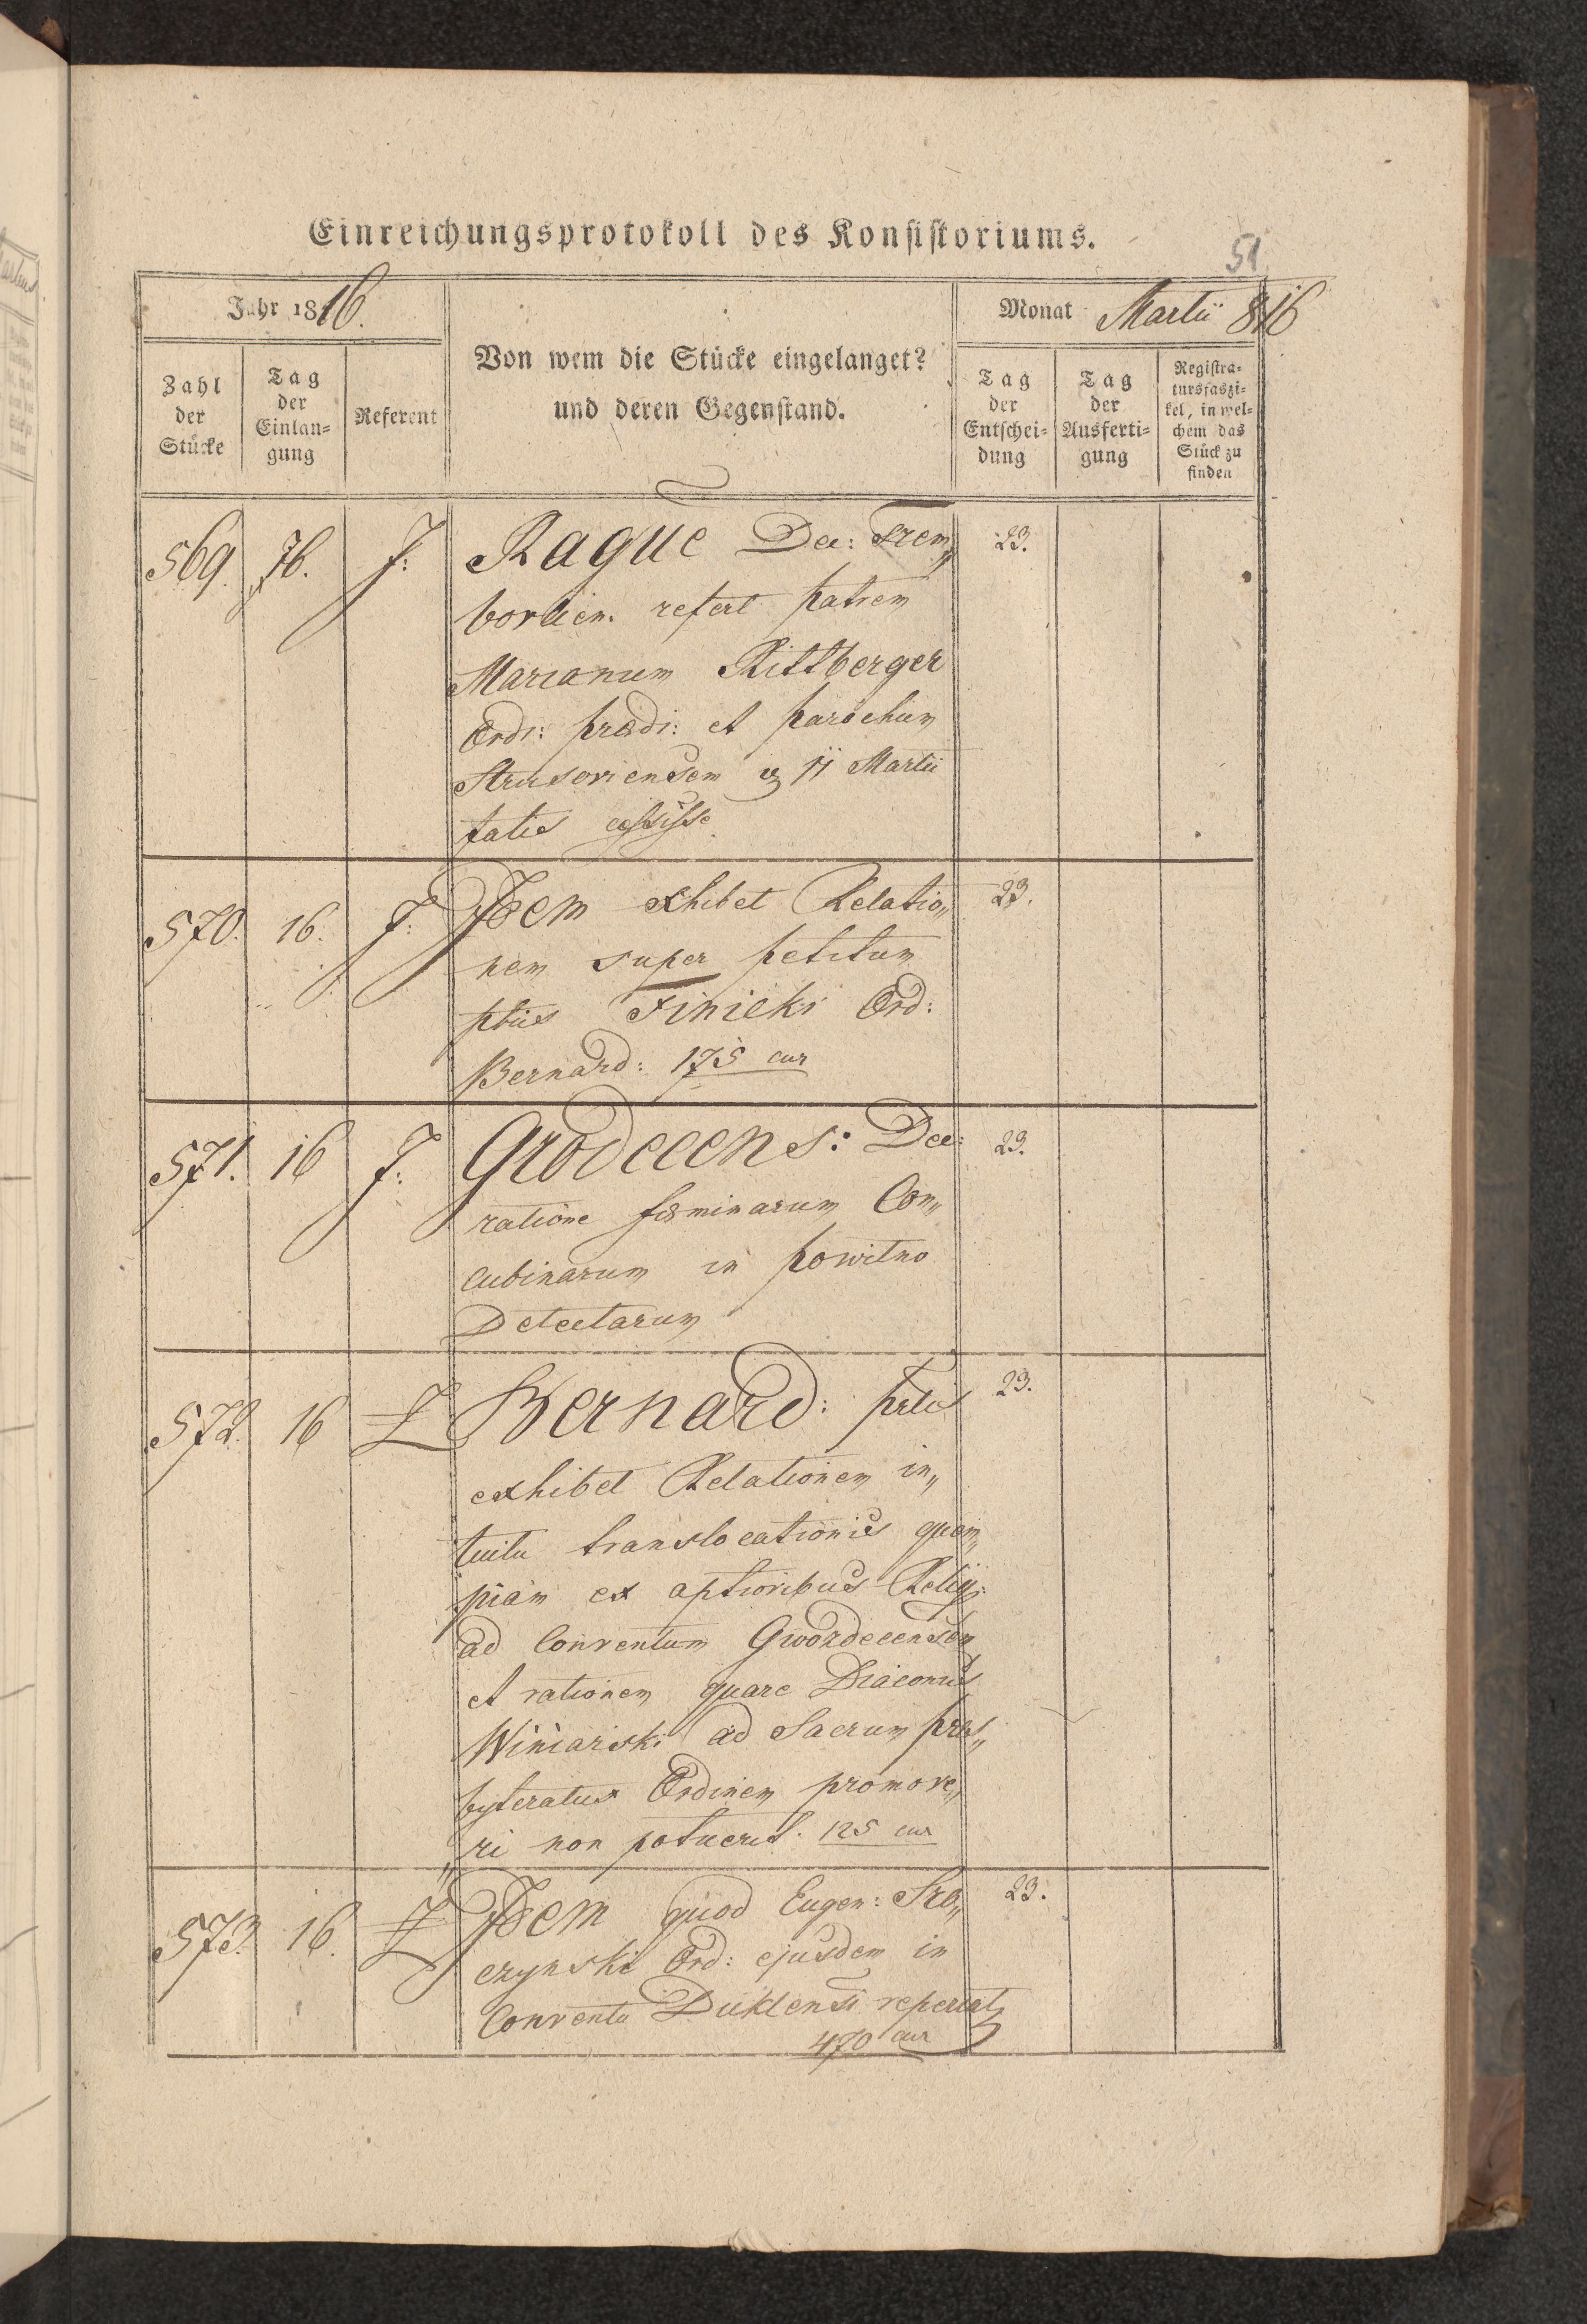 Einreichungsprotokoll des Konsistoriums.
51
Jahr 1816.
Von wem die Stücke eingelanget?
und deren Gegenstand.
Monat Martii 816
Zahl der Stücke
Tag der Einlan=gung
Referent
Tag der Entschei=dung
Tag der Ausferti=gung
Registra=tursfaszi=kel, in wel=chem das Stück zu finden
569. 16. J: Rague Dec: Trem„ 23.
bowlien. refert patrem
Marianum Rittberger
Ordi: prædi: et parochum
Strusoviensem 11 Martii
fatis cessisse
570. 16. J: Idem exhibet Relatio„ 23.
nem super petitum
pbus Finicki Ord:
Bernard: 175 cur
571. 16 J: Grodecens: Dec: 23.
ratione fœminarum Con„
cubinarum in Powitno
Detectarum
572. 16 Bernard: prlis 23.
exhibet Relationem in„
tuitu translocationis quem„
piam ex aptioribus Relig:
ad Conventum Gwozdecensem
et rationem quare Diaconus
Winiarski ad Sacrum pres„
byteratus Ordinem promove„
ri non potuerit. 125 cur
573. 16. Idem quod Eugen: Sro„ 23.
czynski Ord: ejusdem in
Conventu Duklensi reperiat
470 cur